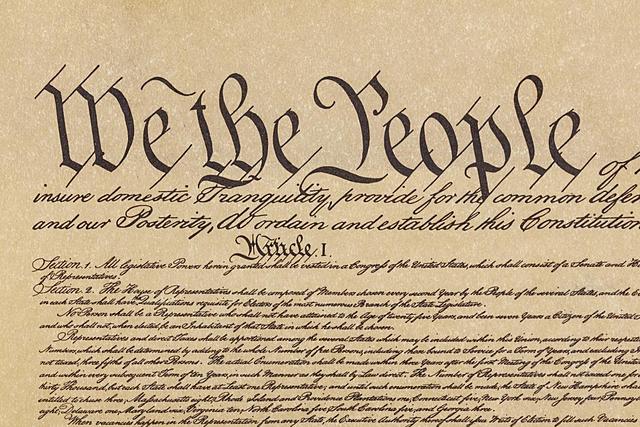 We the People of
insure domestic Tranquility, provide for the common defen
and our Posterity, do ordain and establish this Constitution
Article. I.
Section. 1. All legislative Powers herein granted shall be vested in a Congress of the United States, which shall consist of a Senate and Ho
of Representatives.
Section. 2. The House of Representatives shall be composed of Members chosen every second Year by the People of the several States, and the
in each State shall have the Qualifications requisite for Electors of the most numerous Branch of the State Legislature.
No Person shall be a Representative who shall not have attained to the Age of twenty five Years, and been seven Years a Citizen of the United
and who shall not, when elected, be an Inhabitant of that State in which he shall be chosen.
Representatives and direct Taxes shall be apportioned among the several States which may be included within this Union, according to their respect
Numbers, which shall be determined by adding to the whole Number of free Persons, including those bound to Service for a Term of Years, and
not taxed, three fifths of all other Persons. The actual Enumeration shall be made within three Years after the first Meeting of the Congress of the United
and within every subsequent Term of ten Years, in such Manner as they shall by Law direct. The Number of Representatives shall not exceed one for
thirty Thousand, but each State shall have at Least one Representative; and until such enumeration shall be made, the State of New Hampshire shal
entitled to chuse three, Massachusetts eight, Rhode Island and Providence Plantations one, Connecticut five, New York six, New Jersey four, Pennsy
eight, Delaware one, Maryland six, Virginia ten, North Carolina five, South Carolina five, and Georgia three.
When vacancies happen in the Representation from any State, the Executive Authority thereof shall issue Writs of Election to fill such Vacancies